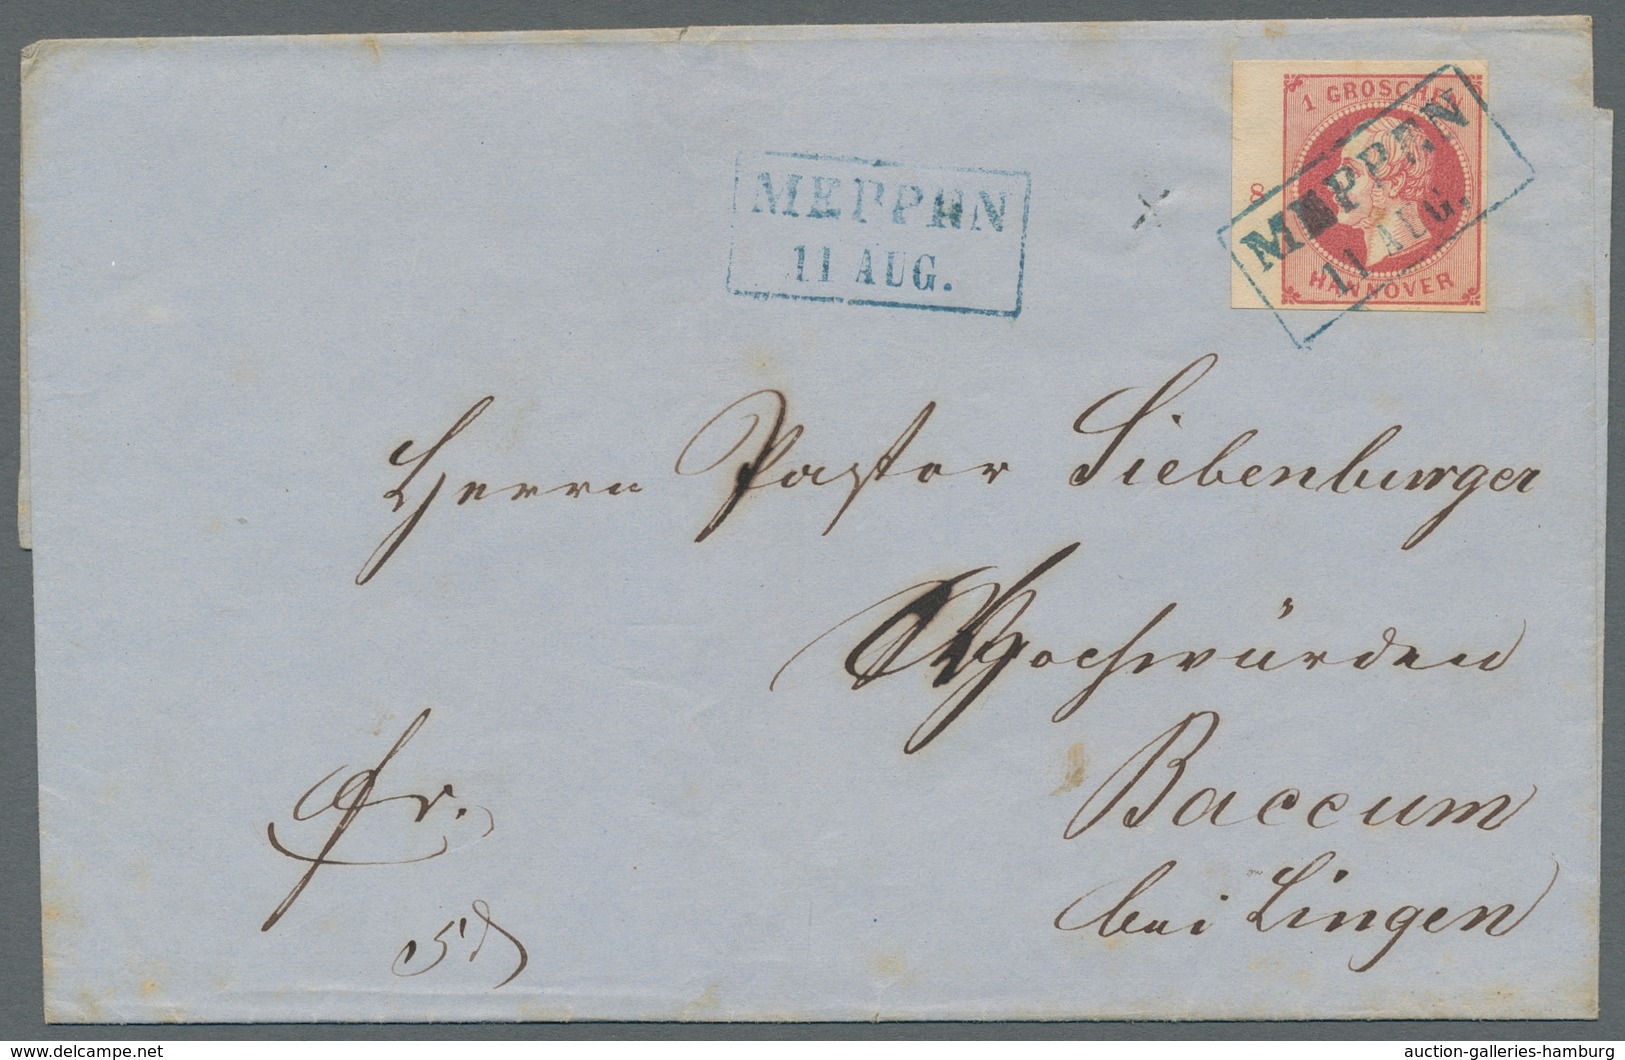 1 GROSCHEN
8
HANNOVER
MEPPEN
11 AUG.
MEPPEN
11 AUG.
Herrn Pastor Siebenburger
Hochwürden
Baccum
bei Lingen
fr.
delcampe.net
auction-galleries-hamburg